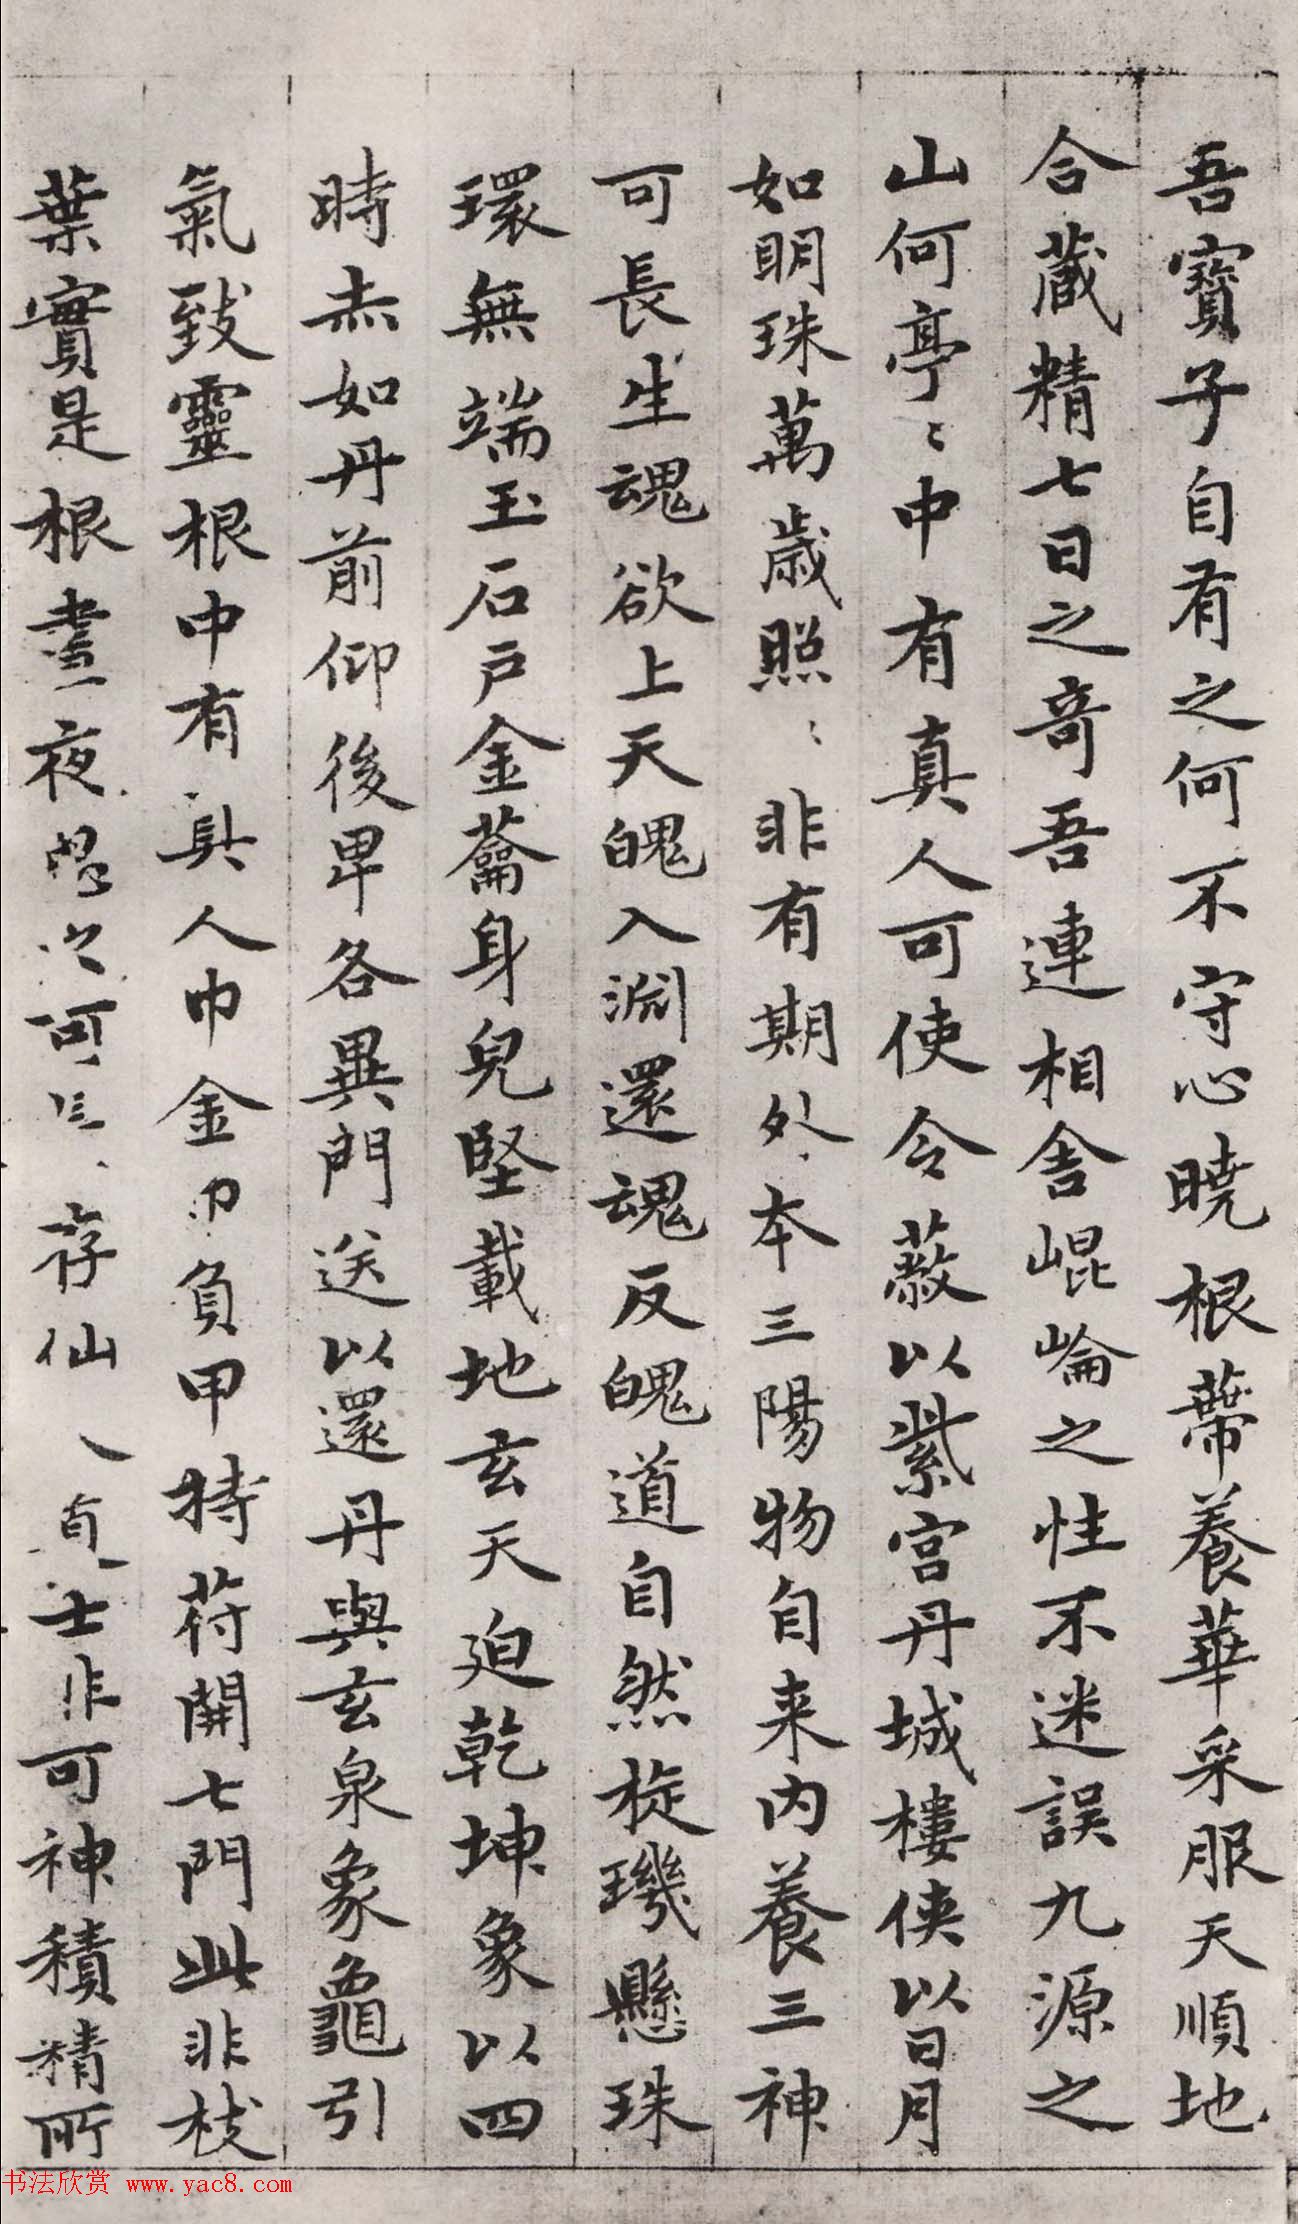 吾寶子自有之何不守心曉根蔕養華采服天順地
合藏精七日之奇吾連相舍崐崘之性不迷誤九源之
山何亭〻中有真人可使令蔽以紫宮丹城樓俠以日月
如明珠萬歲照〻非有期外本三陽物自来內養三神
可長生魂欲上天魄入淵還魂反魄道自然旋璣懸珠
環無端玉石戶金蘥身皃堅載地玄天迫乾坤象以四
時赤如丹前仰後卑各異門送以還丹與玄泉象龜引
氣致靈根中有真人巾金巾負甲持苻開七門此非枝
葉實是根晝夜思之可長存仙人道士非可神積精所
书法欣赏 www.yac8.com